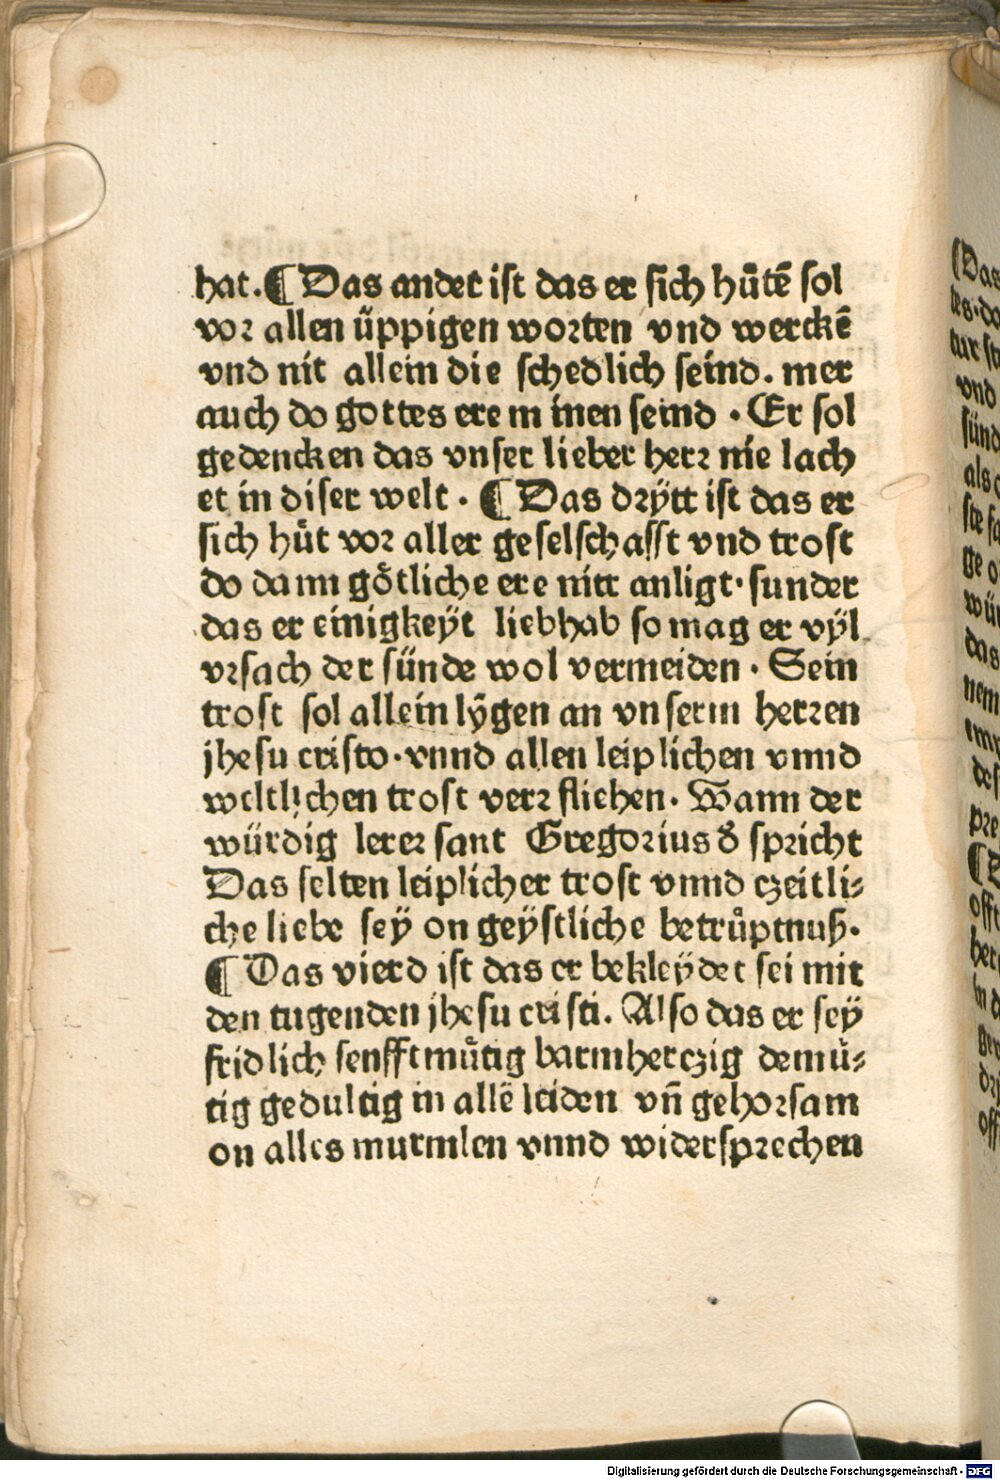 hat. ¶ Das ander ist das er sich hůtē sol
vor allen üppigen worten vnd werckē
vnd nit allein die schedlich seind. mer
auch do gottes ere m inen seind . Er sol
gedencken das vnser lieber herr nie lach
et in diser welt . ¶ Das drÿtt ist das er
sich hůt vor aller geselschafft vnd trost
do dann götliche ere nitt anligt . sunder
das er einigkeÿt liebhab so mag er vÿl
vrsach der sünde wol vermeiden . Sein
trost sol allein lÿgen an vnserm herren
jhesu cristo . vnnd allen leiplichen vnnd
weltlichen trost verr fliehen . Wann der
würdig lerer sant Gregorius d̕ spricht
Das selten leiplicher trost vnnd czeitli⸗
che liebe seÿ on geÿstliche betrůptnuß .
¶ Das vierd ist das er bekleÿdet sei mit
den tugenden jhesu cristi . Also das er seÿ
fridlich senfftmůtig barmherczig demů⸗
tig gedultig in allē leiden vn̄ gehorsam
on alles murmlen vnnd widersprechen
(Das
tes . do
tur st
vnd
sünd
als
ste
ge o
wür
das
nem
des
pre
¶ D
offt
her
in
Digitalisierung gefördert durch die Deutsche Forschungsgemeinschaft - DFG